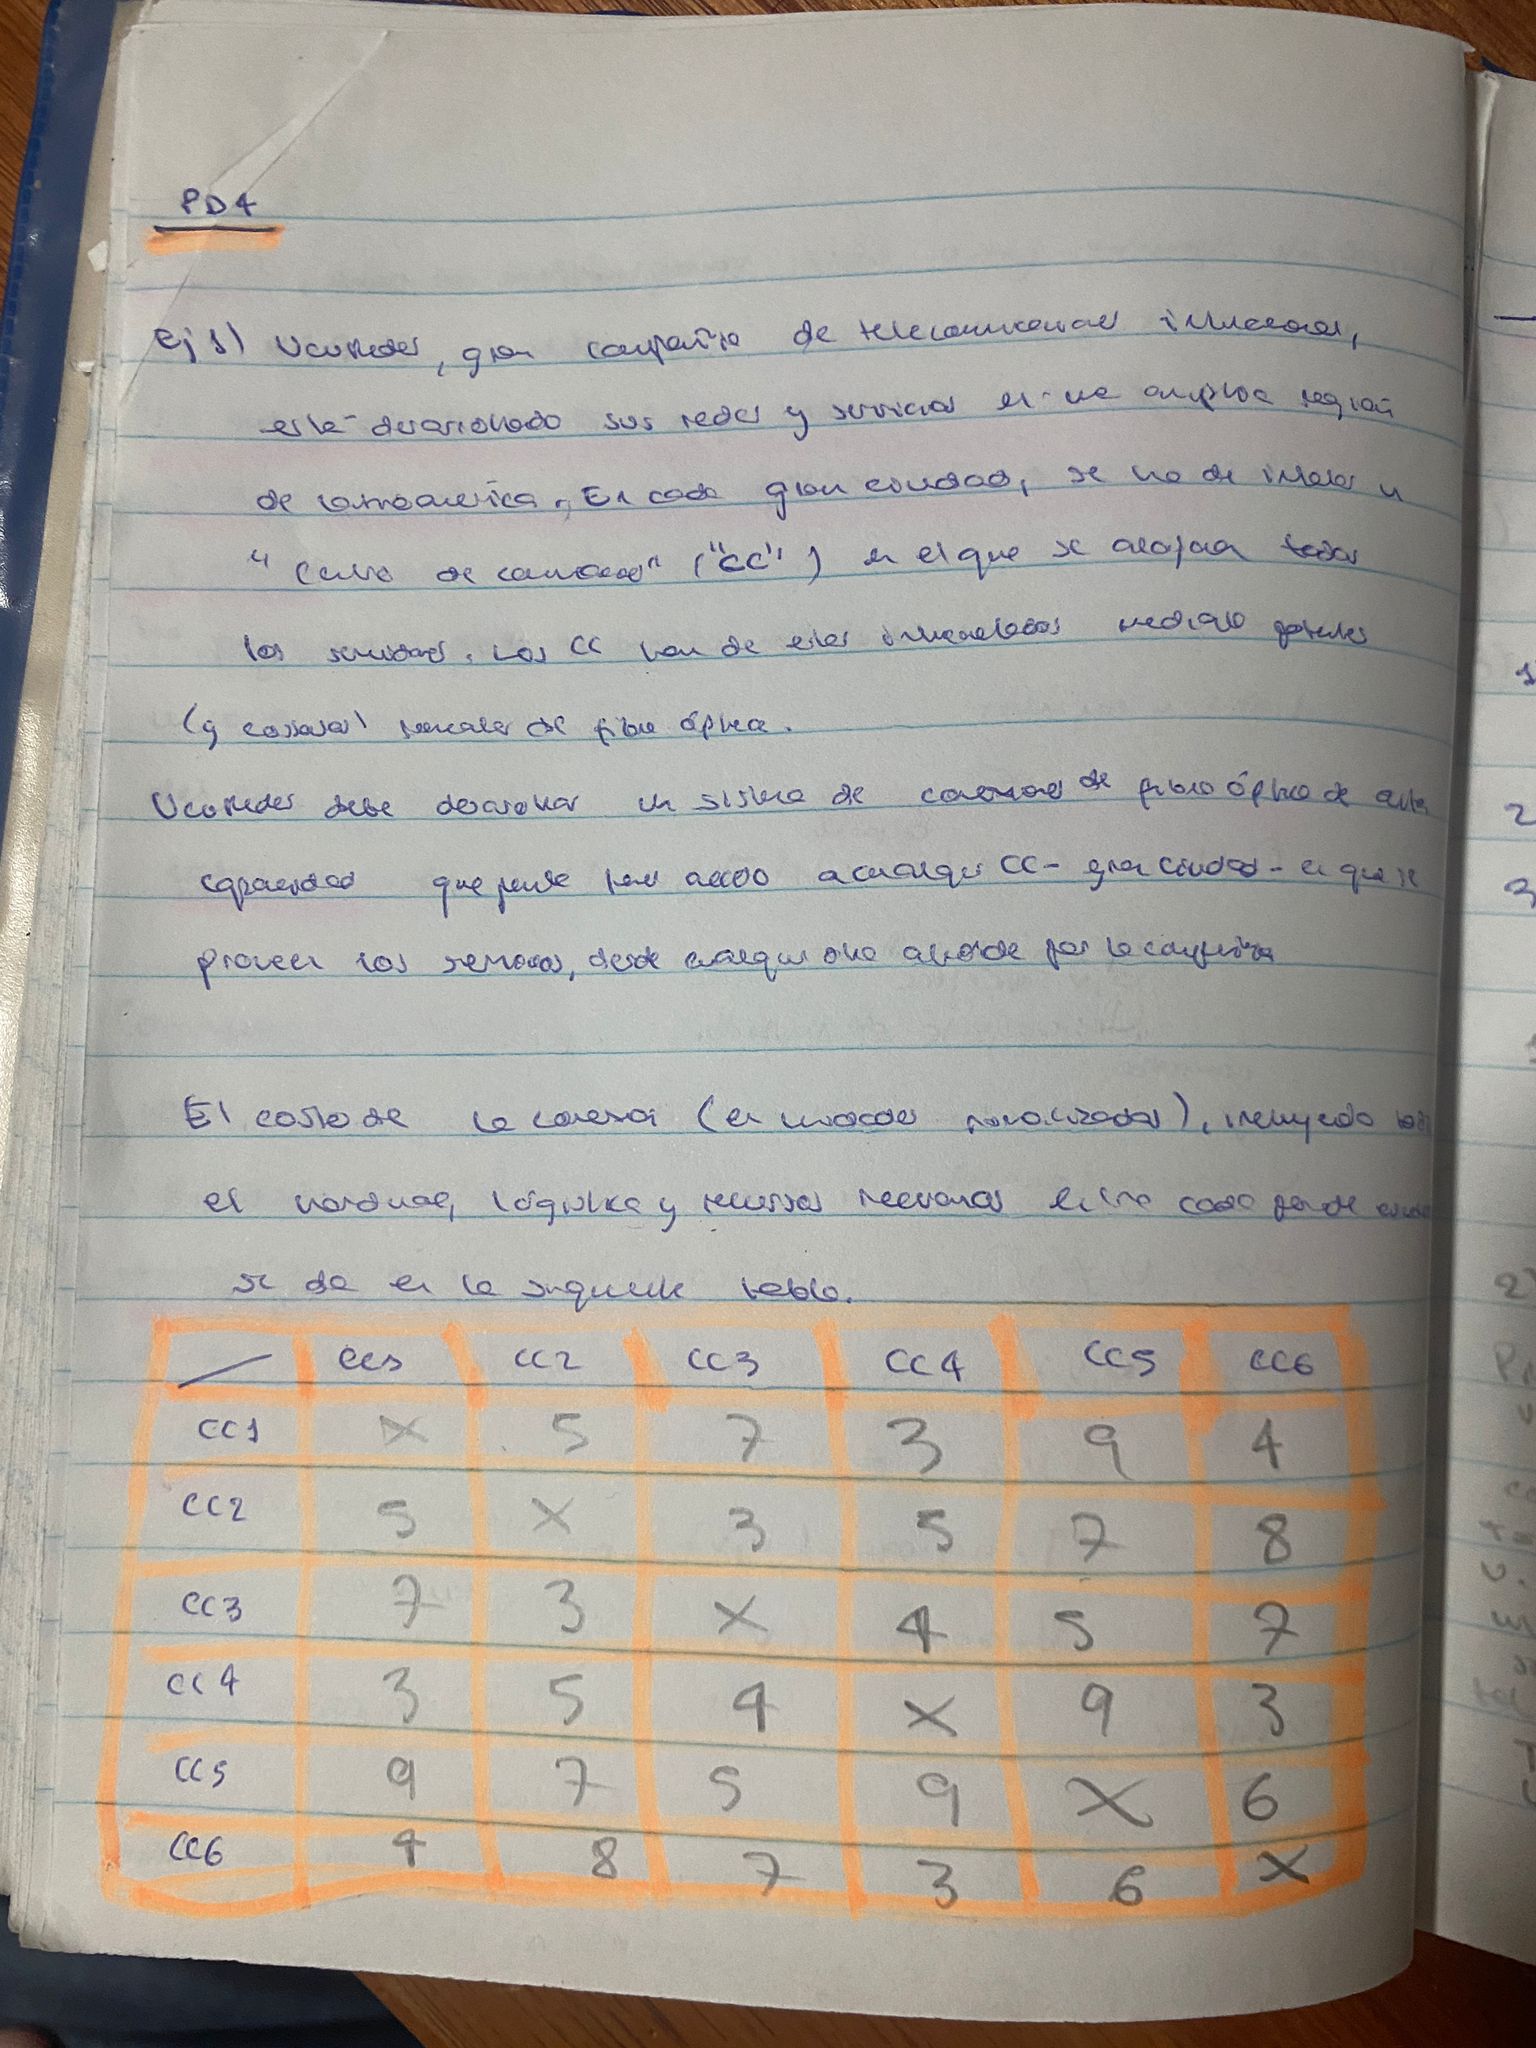 PD4
Ej 1) Ucomedes, gran compañía de telecomunicaciones
está desarrollado sus redes y servicios en amplia región
de Latinoamerica, En cada gran ciudad, se ha de
"Centro de" ("CC") en el que se alojan todos
los servidores. Los CC han de estar interconectados mediante potentes
(y costosos) de fibra óptica.
Ucomedes debe desarrollar un sistema de conexiones de fibra óptica de alta
capacidad que permita acceso a CC - gran ciudad - en que se
proveen los servicios, desde otra por la compañía
El coste de la conexión (en unidades), incluyendo
el hardware, logística y recursos necesarios entre cada par de
se da en la siguiente tabla.
CC1 CC2 CC3 CC4 CC5 CC6
CC1 X 5 7 3 9 4
CC2 5 X 3 5 7 8
CC3 7 3 X 4 5 7
CC4 3 5 4 X 9 3
CC5 9 7 5 9 X 6
CC6 4 8 7 3 6 X